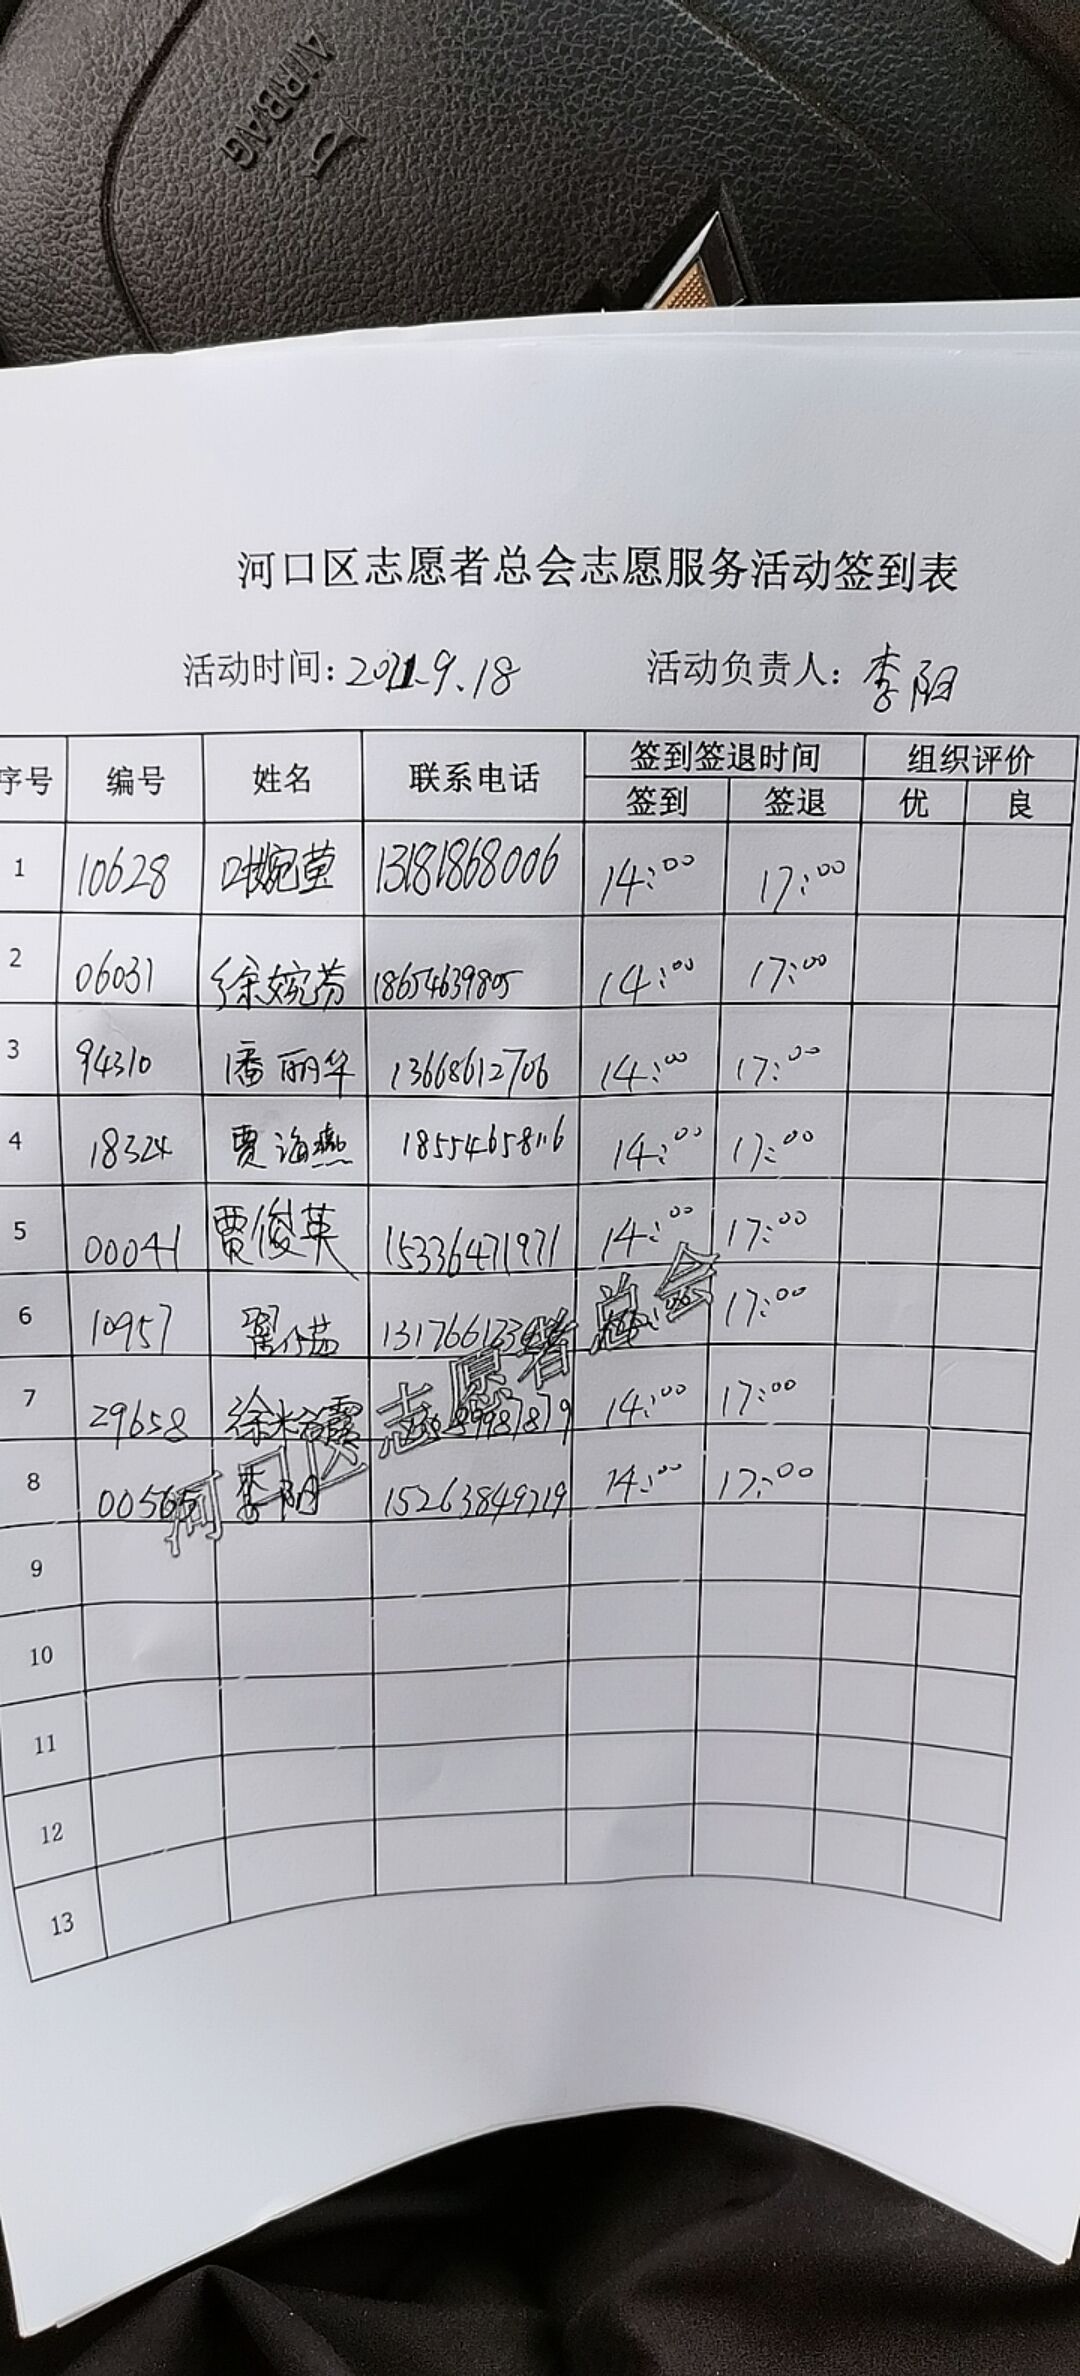 AIRBAG
河口区志愿者总会志愿服务活动签到表
活动时间: 2021.9.18 活动负责人: 李阳
序号 编号 姓名 联系电话 签到签退时间 组织评价
签到 签退 优 良
1 10628 叶婉莹 13181868006 14:00 17:00
2 06031 徐婉芳 18654639805 14:00 17:00
3 94310 潘丽华 13668612706 14:00 17:00
4 18324 贾海燕 18554658116 14:00 17:00
5 00041 贾俊英 15336471971 14:00 17:00
6 10957 17:00
7 29658 14:00 17:00
8 00565 李阳 15263849719 14:00 17:00
9
10
11
12
13
河口区志愿者总会